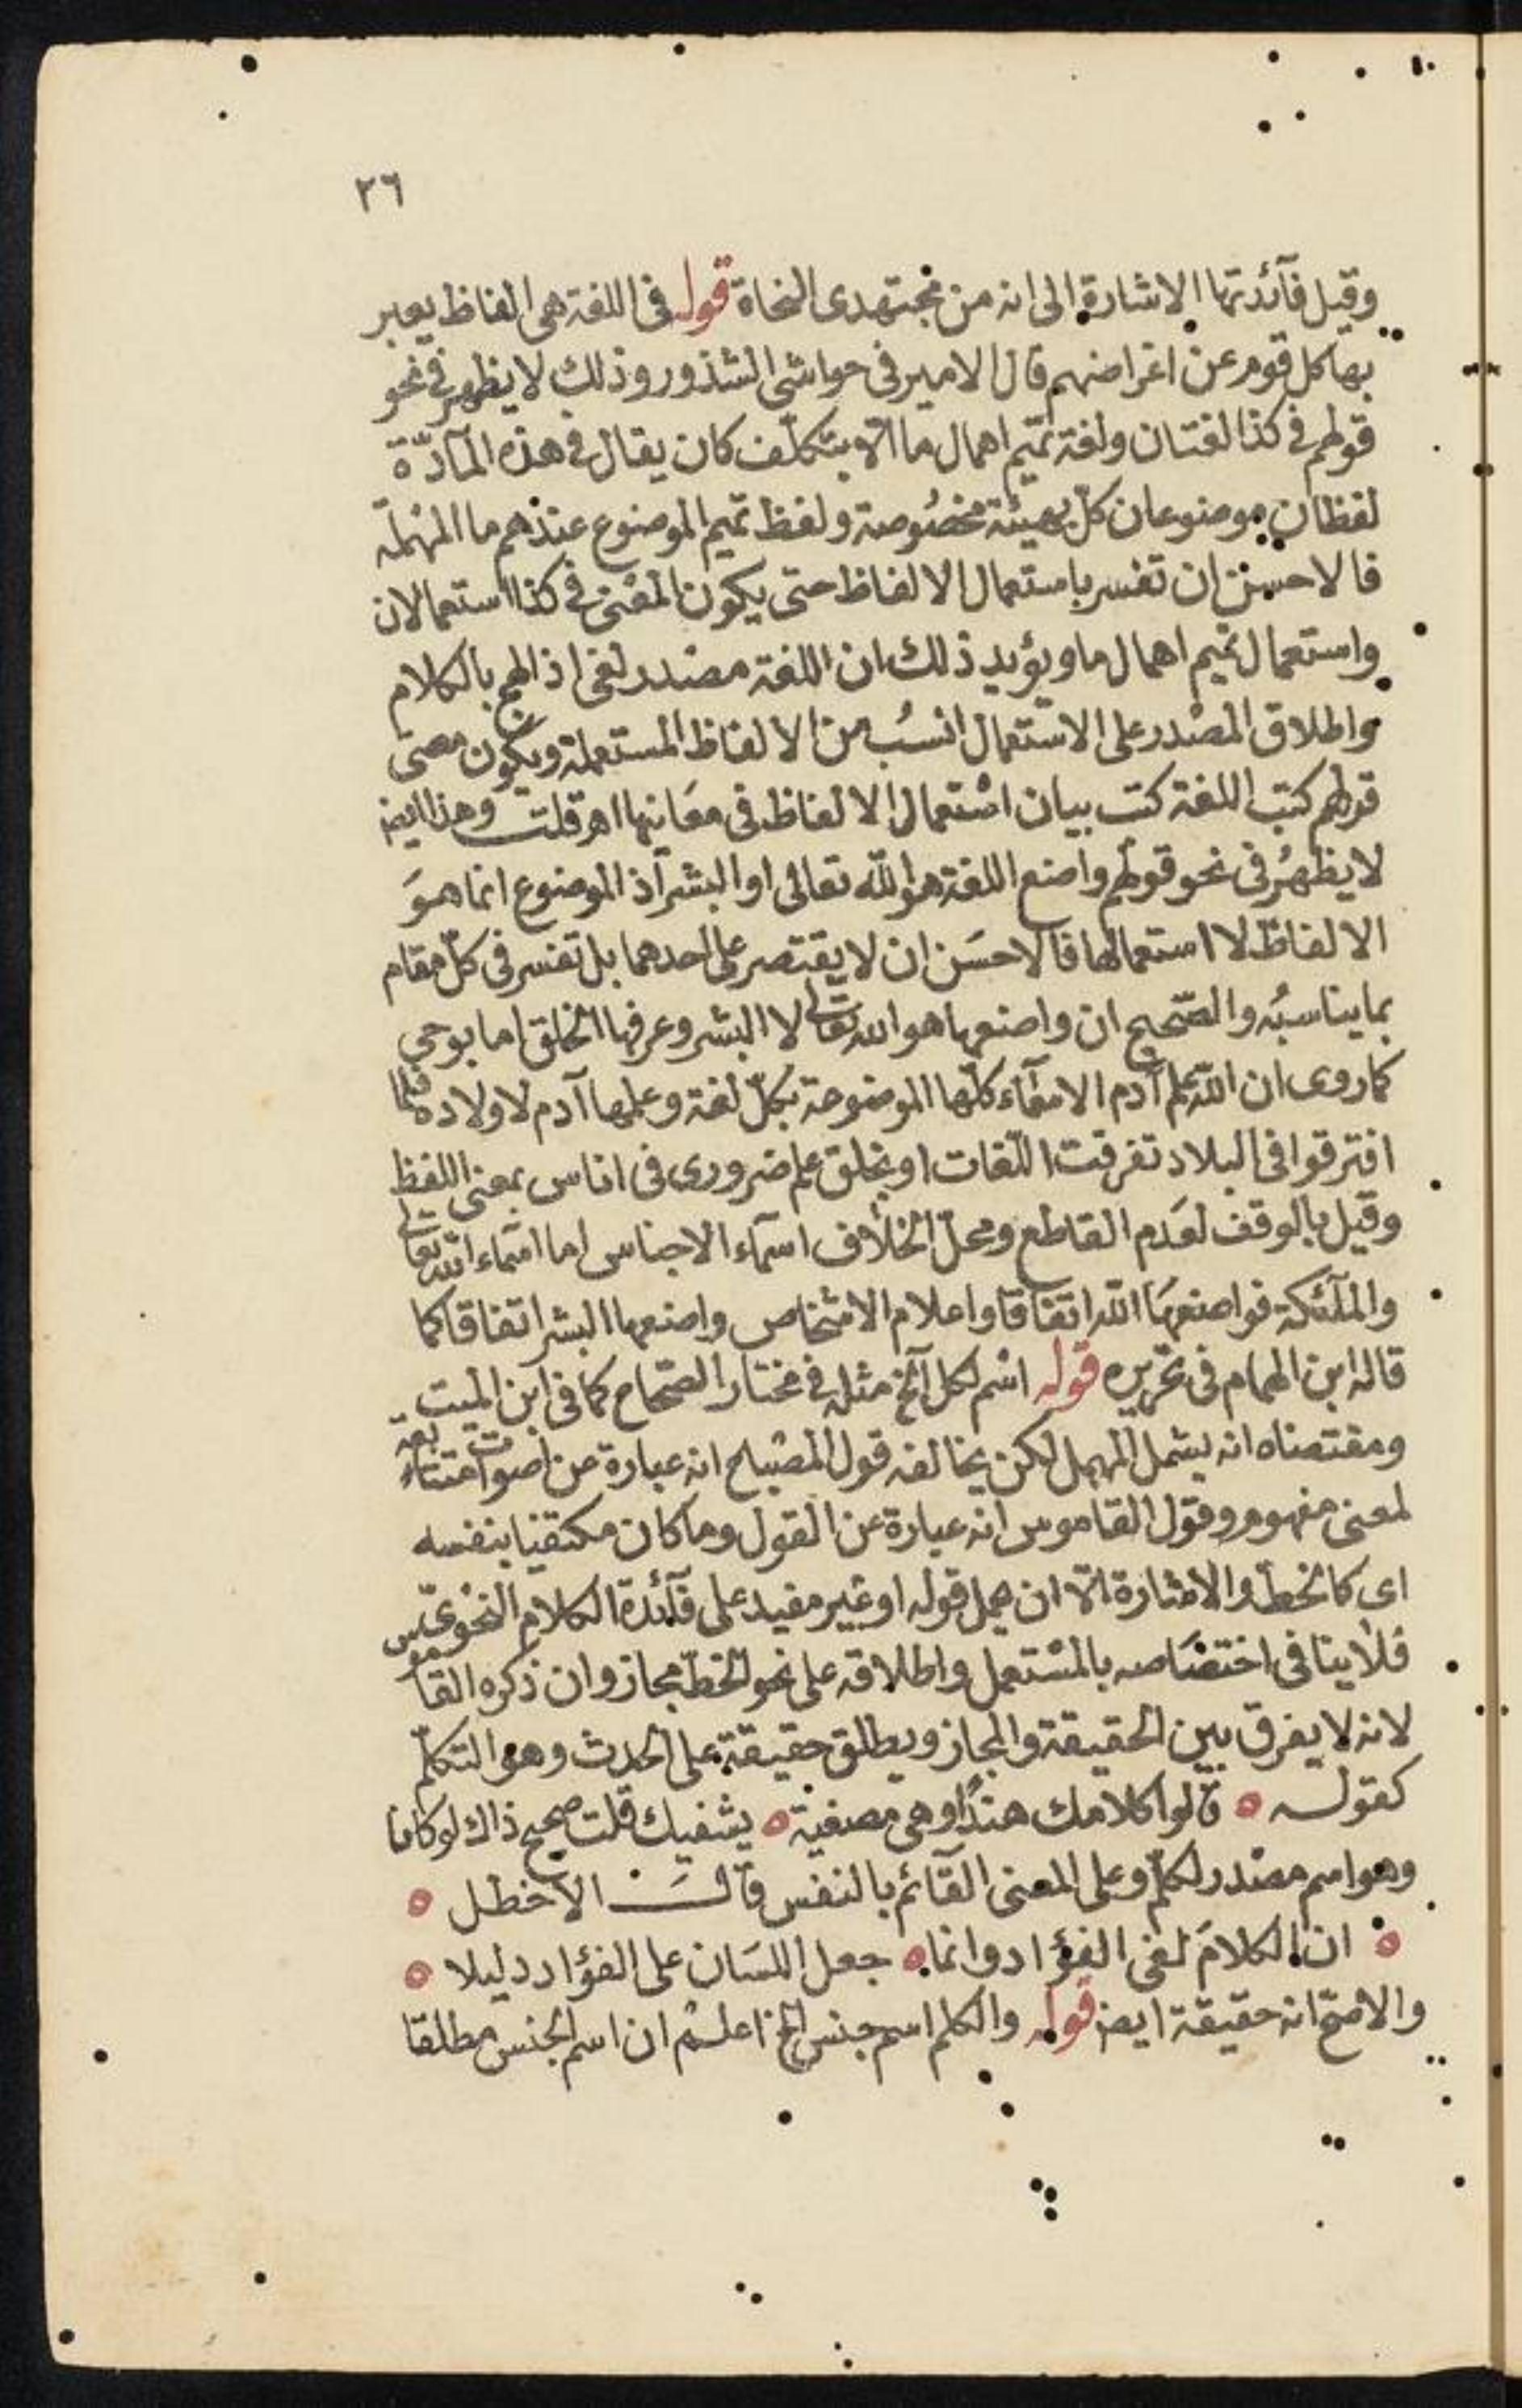 ٢٦
وقيل فآئدتها الاشارة الى انه من مجتهدى النحاة قوله فى اللغة هى الفاظ يعبر
بها كل قوم عن اغراضهم قال الامير فى حواشى الشذور وذلك لا يظهر فى نحو
قولهم فى كذا لغتان ولغة تميم اهمال ما الا بتكلف كان يقال فى هذه المآدّة
لفظان موضوعان كل بهيئة مخصُوصة ولفظ تميم الموضوع عندهم ما المهملة
فالاحسن ان تفسر باستعمال الالفاظ حتى يكون المعنى فى كذا استعمالان
واستعمال تميم اهمال ما ويؤيد ذلك ان اللغة مصدر لغى اذا لهج بالكلام
واطلاق المصدر على الاستعمال انسبُ من الالفاظ المستعملة ويكون معنى
قولهم كتب اللغة كتب بيان استعمال الالفاظ فى معَانيها اهر قلت وهذا ايض
لا يظهرُ فى نحو قولهم واضع اللغة هو الله تعالى او البشر اذ الموضوع انما هوَ
الالفاظ لا استعمالها فالاحسَن ان لا يقتصر على احدهما بل تفسر فى كلّ مقام
بما يناسبُه والصّحيح ان واضعها هو الله تعالى لا البشر وعرفها الخلق اما بوحى
كما روى ان الله علم آدم الاسمآء كلّها الموضوعة بكلّ لغة وعلمها آدم لاولاده فلما
افترقوا فى البلاد تفرقت اللّغات او بخلق علم ضرورى فى اناس بمعنى اللفظ
وقيل بالوقف لعَدم القاطع ومحلّ الخلاف اسمآء الاجناس اما اسمآء الله تعالى
والملآئكة فواضعهَا الله اتفاقا واعلام الاشخاص واضعها البشر اتفاقا كما
قاله ابن الهمام فى تحريره قوله اسْم لكل آلخ مثله فى مختار الصّحاح كما فى ابن الميت
ومقتضاه انه يشمل المهمل لكن يخالفه قول المصْباح انه عبارة عن اصوات متتابعة
لمعنى مفهوم وقول القاموس انه عبارة عن القول وما كان مكتفيا بنفسه
اى كالخطّ والاشارة الا ان يحمل قوله او غير مفيد على فآئدة الكلام النحوىّ
فلا ينافى اختصَاصه بالمسْتعمل واطلاقه على نحو الخطّ مجاز وان ذكره القاموس
لانه لا يفرق بين الحقيقة والمجاز ويطلق حقيقة على الحدث وهو التكلّم
كقوله ٥ قالوا كلامك هندًا وهى مصغية ٥ يشفيك قلت صحيح ذاك لو كانا
وهو اسم مصْدر لكلّم وعلى المعنى القآئم بالنفس قالَ الاخطل ٥
٥ ان الكلامَ لفى الفؤاد وانما ٥ جعل اللسَان على الفؤاد دليلا ٥
والاصحّ انه حقيقة ايض قوله والكلم اسم جنس الخ اعلم ان اسم الجنس مطلقا